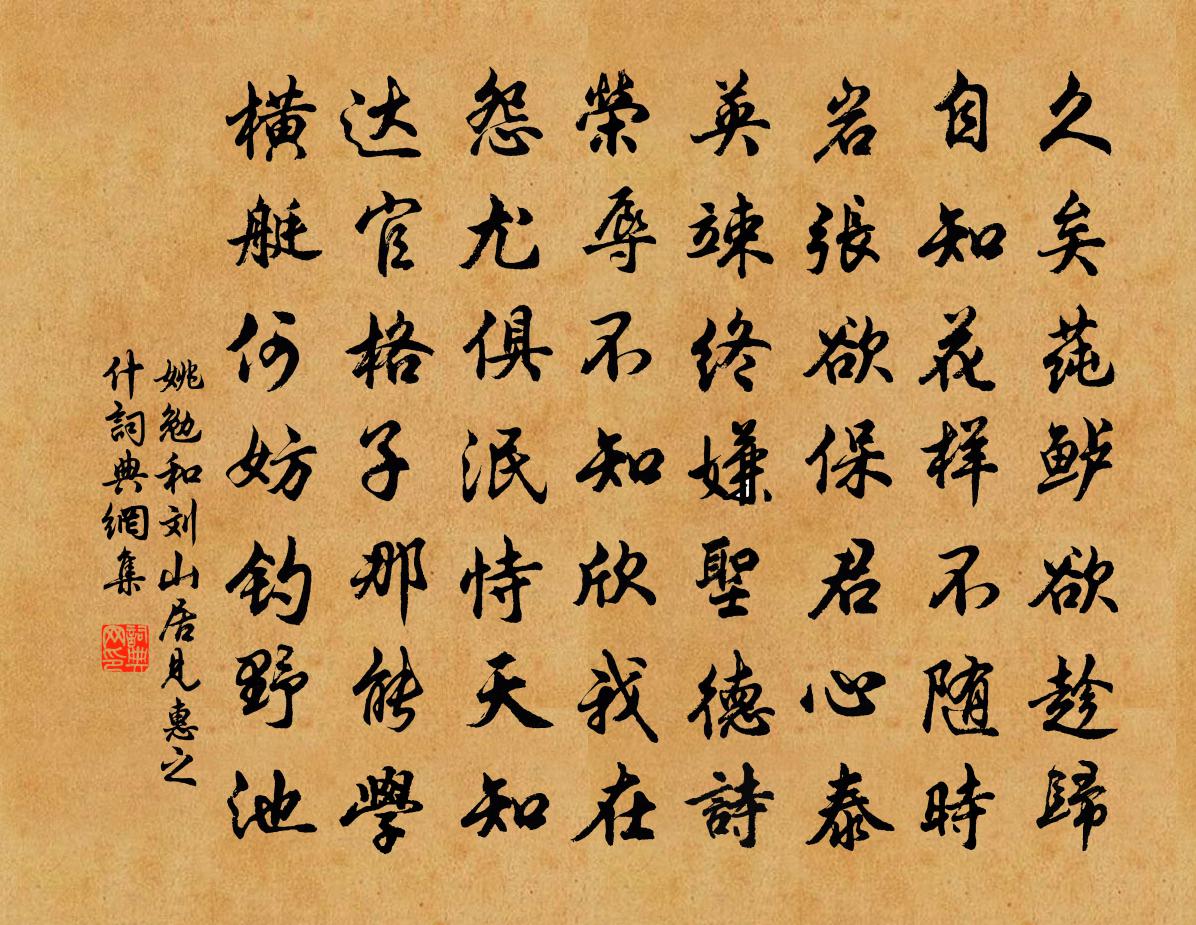 久矣莼鲈欲趁歸
自知花样不随時
岩張欲保君心泰
英竦终嫌聖德詩
榮辱不知欣我在
怨尤俱泯恃天知
达官格子那能學
横艇何妨钓野池
姚勉和刘山居見惠之
什詞典網集
詞典
网印